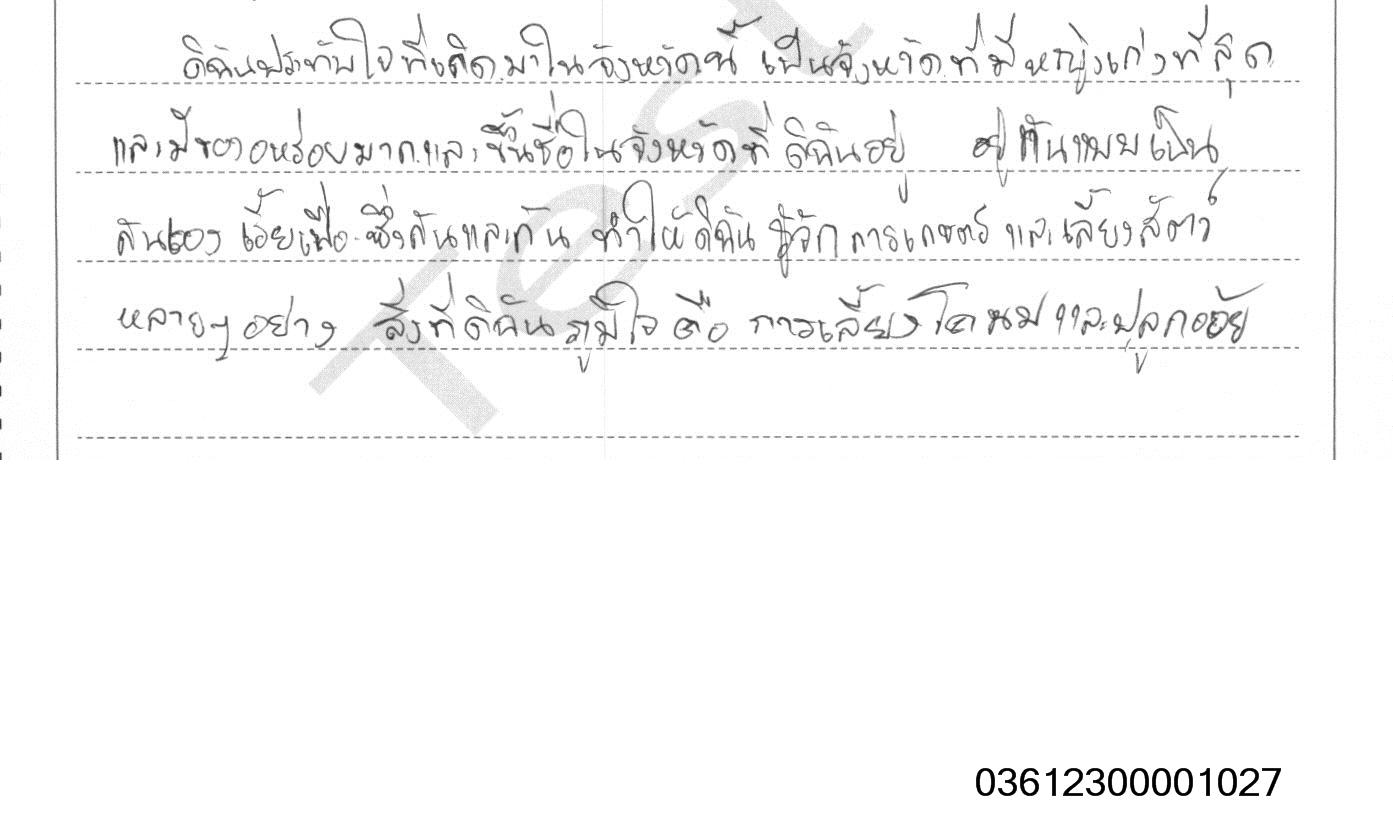 ดิฉันประทับใจที่เกิดมาในจังหวัดนี้ เป็นจังหวัดที่มีหญิงเก่งที่สุด
และมีของอหร่อยมากและขึ้นชื่อในจังหวัดที่ดิฉันอยู่ อยู่กันแบบเป็น
กันเอง เอื้อยเฟื้อซึ่งกันและกัน ทำให้ดิฉันรู้จักการเกษตร์และเลี้ยงสัตว์
หลายๆอย่าง สิ่งที่ดิฉันภูมิใจคือ การเลี้ยงโคนมและปลูกออ้ย
Test
03612300001027